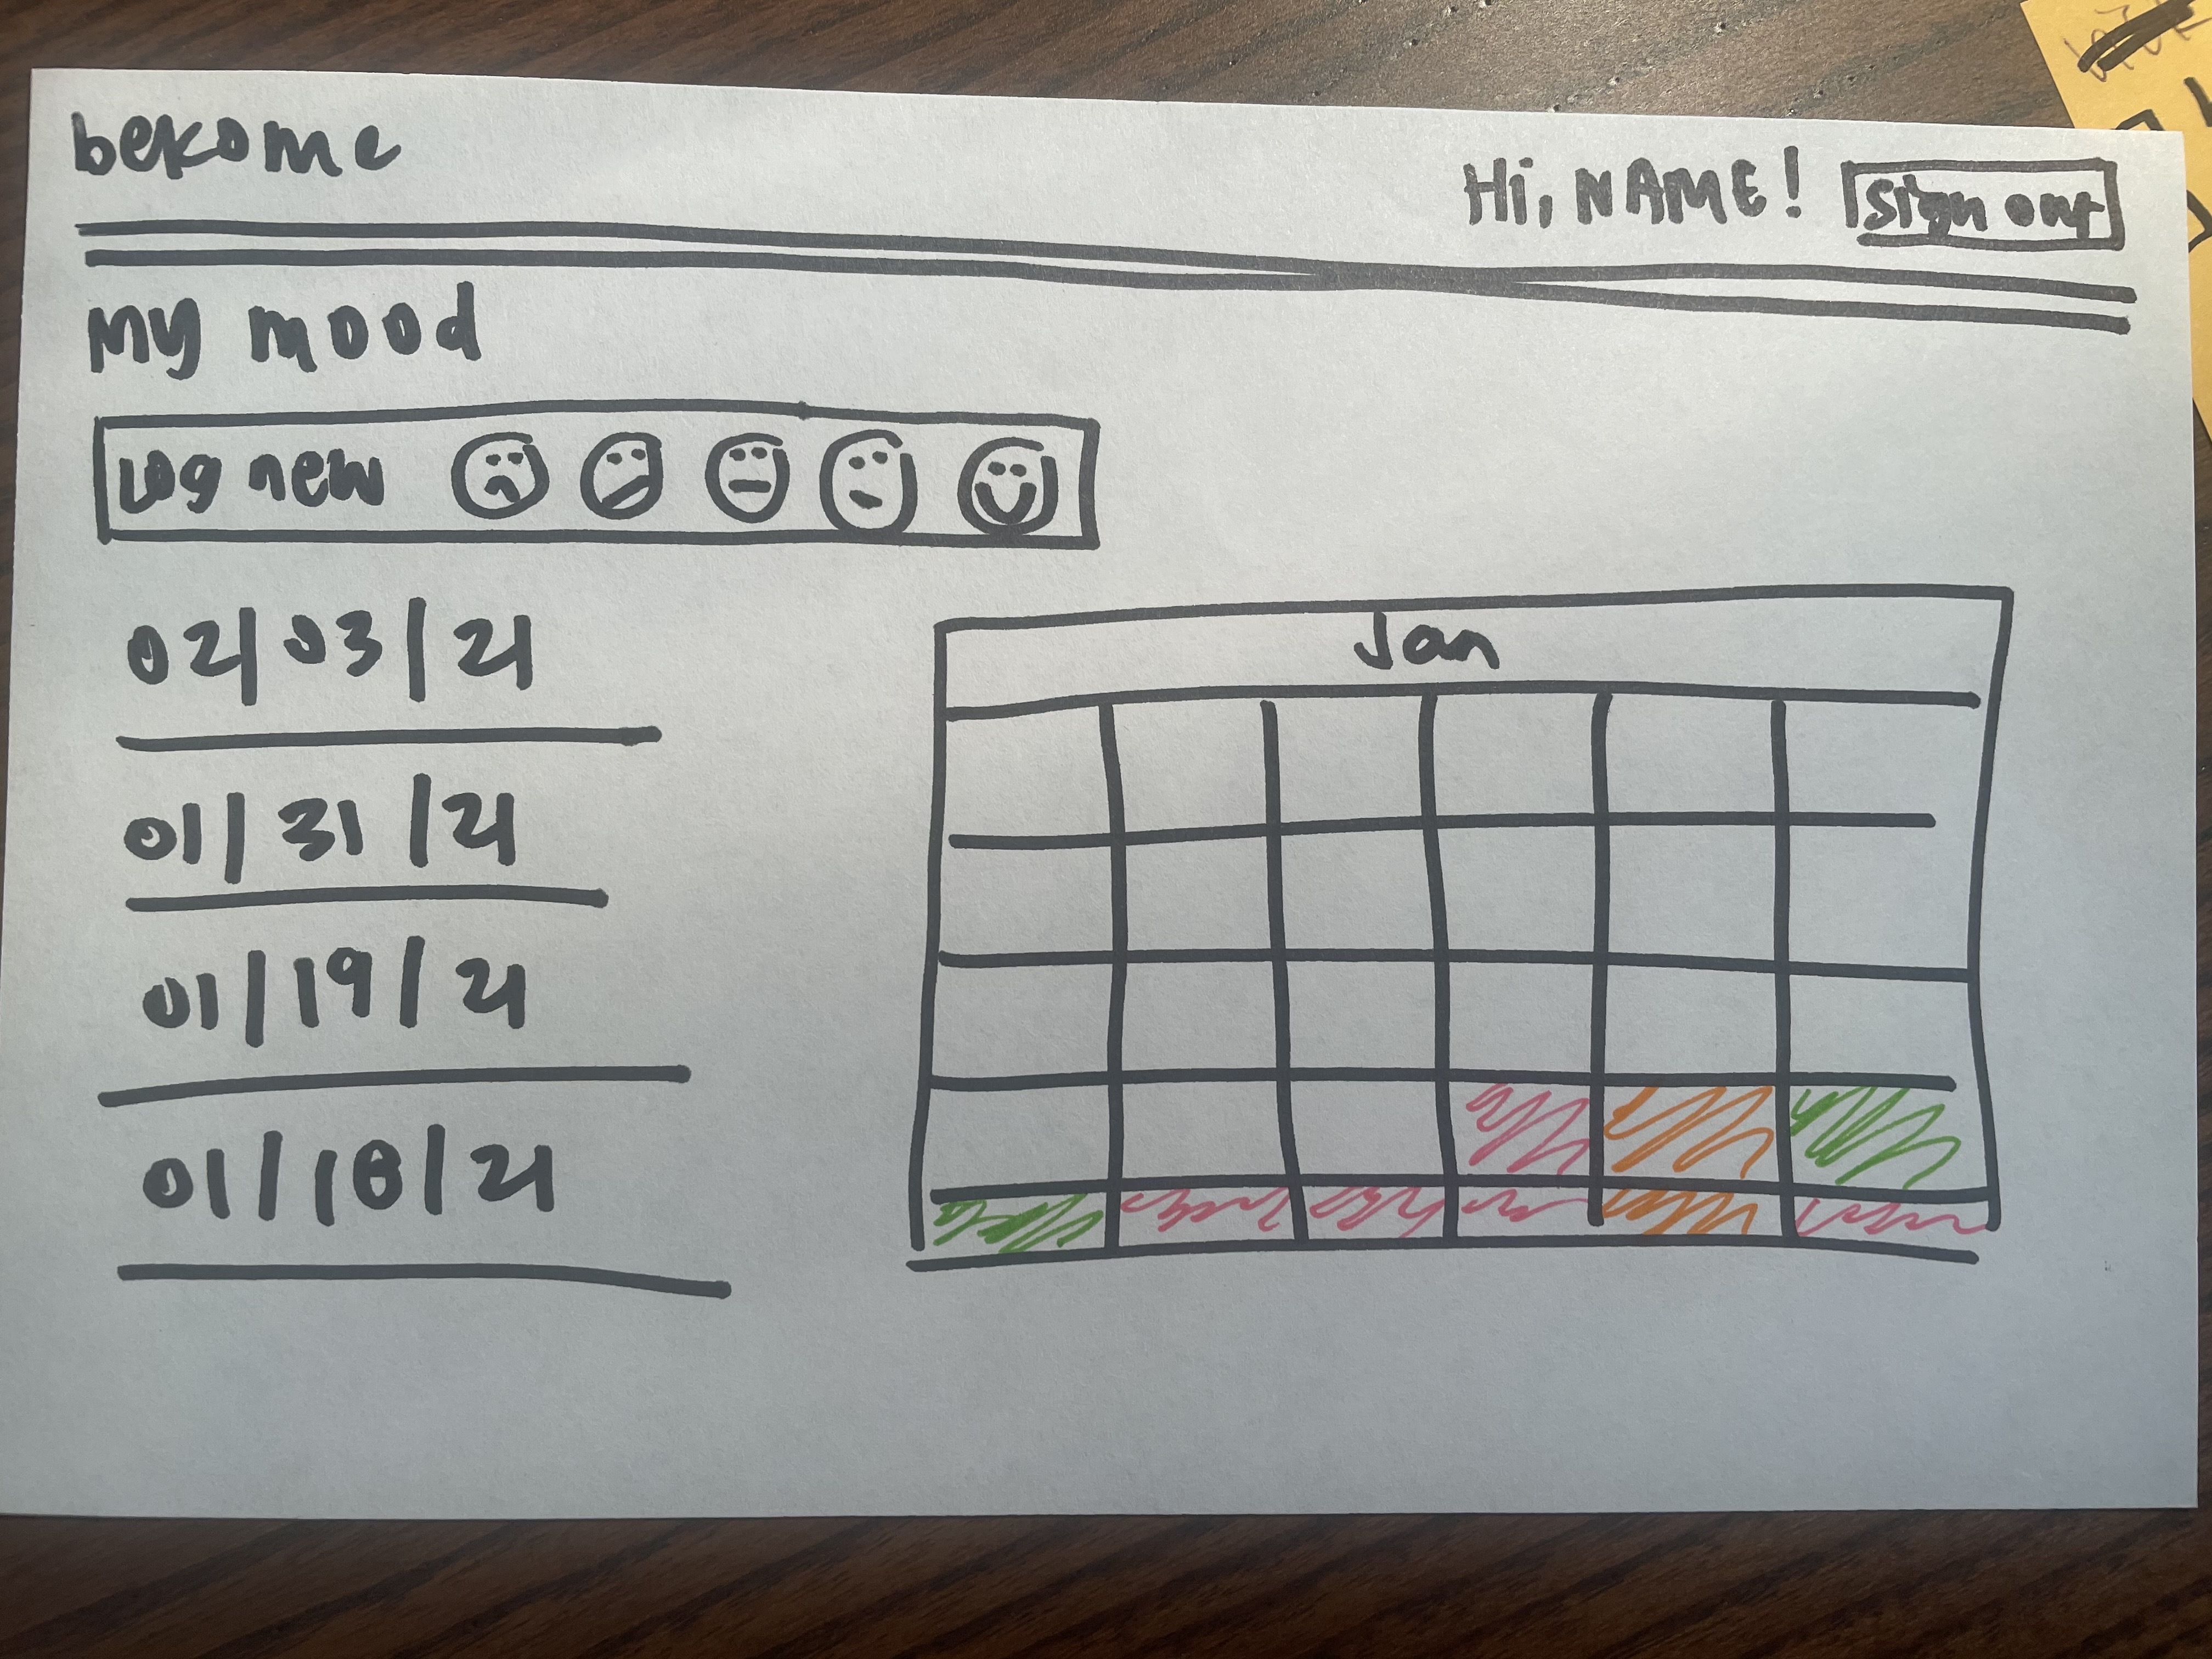 bekome
Hi, NAME! sign out
My mood
Log new
02/03/21
01/31/21
01/19/21
01/18/21
Jan